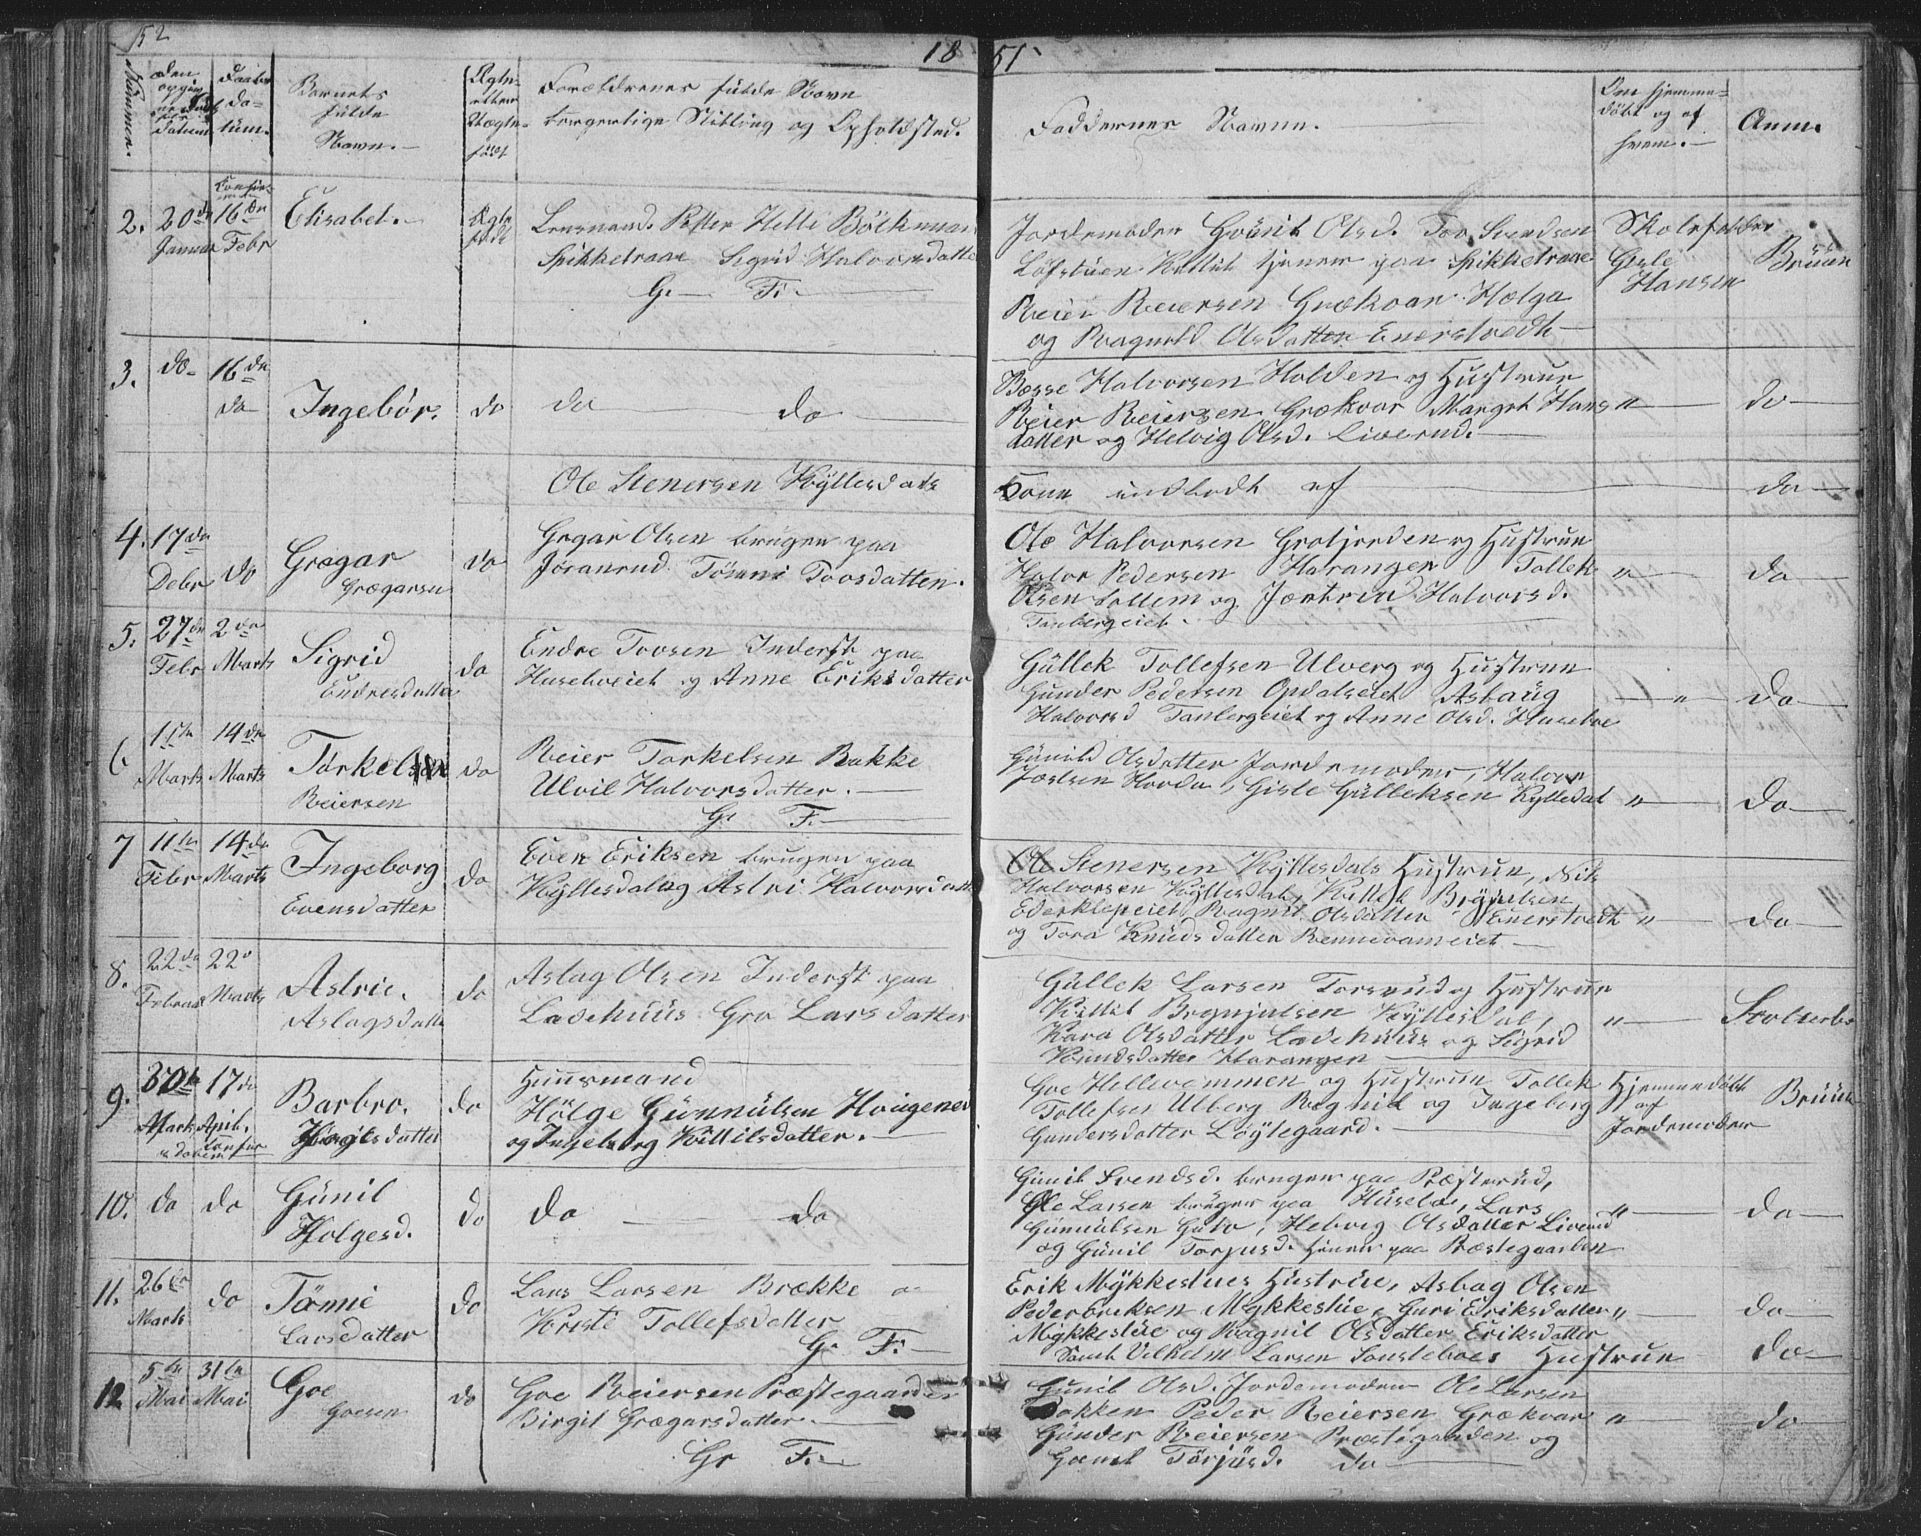 52
18 51
Nummer.
den
Daabs
da-
tum.
Barnets
fulde
Navn.
Ægte
eller
Uægte
født
Forældrenes fulde Navn
borgerlige Stilling og Opholdsted.
Faddernes Navne.
Om hjemme-
døbt og af
hvem.
Anm.
2. 20de
Januar
16de
Febr
Elisabet.
Ægte
født
Lensmand Petter Helli Böckman
Spikkelraae Sigrid Halvorsdatter
G. F.
Jordemoder Gunil Olsd. Tov Svendsen
Löfstuen Kittil tjener paa Spikkelraae
Reier Reiersen Grækvar Helga
og Ragnild Olsdatter Enerstvedt
Skolefolder
Gisle
Hansen
Brüün
3. do 16de
do
Ingebör.
do
do do
Basse Halvorsen Holden og Hustrue
Reier Reiersen Grækvar Margit Hans
datter og Helvig Olsd. Liverud.
" do
Ole Stenersen Kÿllesdals
Kone indledt af
do
4. 17de
Debr
do
Grægar
Grægarsen
do
Gregar Olsen bruger paa
Joranrud Tönne Tovsdatter.
Ole Halvorsen Grotjorden og Hustrue
Halvor Pedersen Haranger Tollek
Olsen Sollem og Jortrud Halvorsd.
Tanbergeiet.
" do
5. 27de
Febr
2den
Marts
Sigrid
Endresdatter
do
Endre Tovsen Inderst paa
Huseboeiet og Anne Eriksdatter
Güllek Tollefsen Ulverg og Hustrue
Gunder Pedersen Opdalseiet Aslaug
Halvorsd Tanbergeiet og Anne Olsd. Huseboe
" do
6 1ste
Marts
14de
Marts
Torkelsen
Reiersen
do
Reier Torkelsen Bakke
Ulvil Halvorsdatter.
G. F.
Günild Olsdatter Jordemoder, Halvor
Joelsen Hovda, Gisle Gülleksen Kylledal
" do
7 11te
Febr
14de
Marts
Ingeborg
Evensdatter
do
Even Eriksen bruger paa
Kÿllesdal og Astri Halvorsdatt
Ole Stenersen Kÿllesdals Hustrue, Nils
Halvorsen Kÿllesdal, Kittil Brÿnilsen
Ederklepeiet Ragnil Olsdatter Enerstvedt
og Tora Knudsdatter Rennevameiet
" do
8. 22de
Februar
22de
Marts
Astrie.
Aslagsdatte
do
Aslag Olsen Inderst paa
Ladehuus Gro Larsdatter
Güllek Larsen Torsrud og Hustrue
Kittil Brynjulsen Kÿllesdal,
Kara Olsdatter Ladehuus og Sigrid
Knudsdatter Harangen
"
9. 30te
Marts
17de
Apil.
Barbro.
do
Huusmand
Hölge Gunnulsen Hougeneie
og Ingeborg Kittilsdatter.
Goe Hellevammen og Hustrue Tollek
Tollefsen Ulberg Ragnil og Ingeborg
Gundersdatter Löÿtegaard.
Hjemmedöbt
af
Jordemoder
Brüün
10. do do
Günil
Holgesd.
do
do do
Gunil Svendsd. bruger paa Præsterud,
Ole Larsen bruger paa Husebo, Lars
Gunnulsen Gulv, Helvig Olsdatter Liverud
og Günil Torjusd. tjener paa Præstegaarden
" do
11. 26de
Marts
do
Tönnie
Larsdatter
do
Lars Larsen Brække o
Kristi Tollefsdatter
G. F.
Erik Mÿkkestues Hustrue, Aslag Olsen
Peder Eriksen Mÿkkestüe, Guri Eriksdatter
Mÿkkestüe og Ragnil Olsdatter Eriksdatter
Samt Vilhelm Larsen Sønsteboes Hustrue
" do
do
12 5te
Mai
31te
Mai
Goe
Goesen
do
Goe Reiersen Præstegaardeie
Birgit Grægarsdatter.
Gr F.
Gunil Olsd. Jordemoder Ole Larsen
Bakken Peder Reiersen Grækvar
Günder Reiersen Præstegarden og
Gunil Törjüsd. do
" do